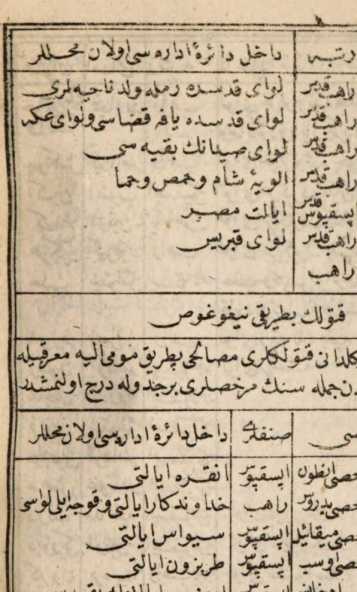 رتبه داخل دائرۀ اداره سی اولان محللر
راهب قدیر لوای قدسده رمله ولد ناحیه لری
راهب قدیر لوای قدسده یافه قضاسی ولوای عکه
راهب قدیر لوای صیدانك بقیه سی
راهب قدیر الویۀ شام وحمص وحما
اپسقپوس قدیر ایالت مصر
راهب قدیر لوای قبریس
راهب
قتولك بطریقی نیغوغوص
کلدانی قتولکلری مصالحی بطریق مومی الیه معرفتیله
جمله سنك مرخصلری برجدوله درج اولنمشدر
صنفلری داخل دائرۀ اداره سی اولان محللر
انطون اپسقپوس انقره ایالتی
بدروس راهب خداوندکار ایالتی وقوجه ایلی لواسی
میقائیل اپسقپوس سیواس ایالتی
اپسقپوس طربزون ایالتی